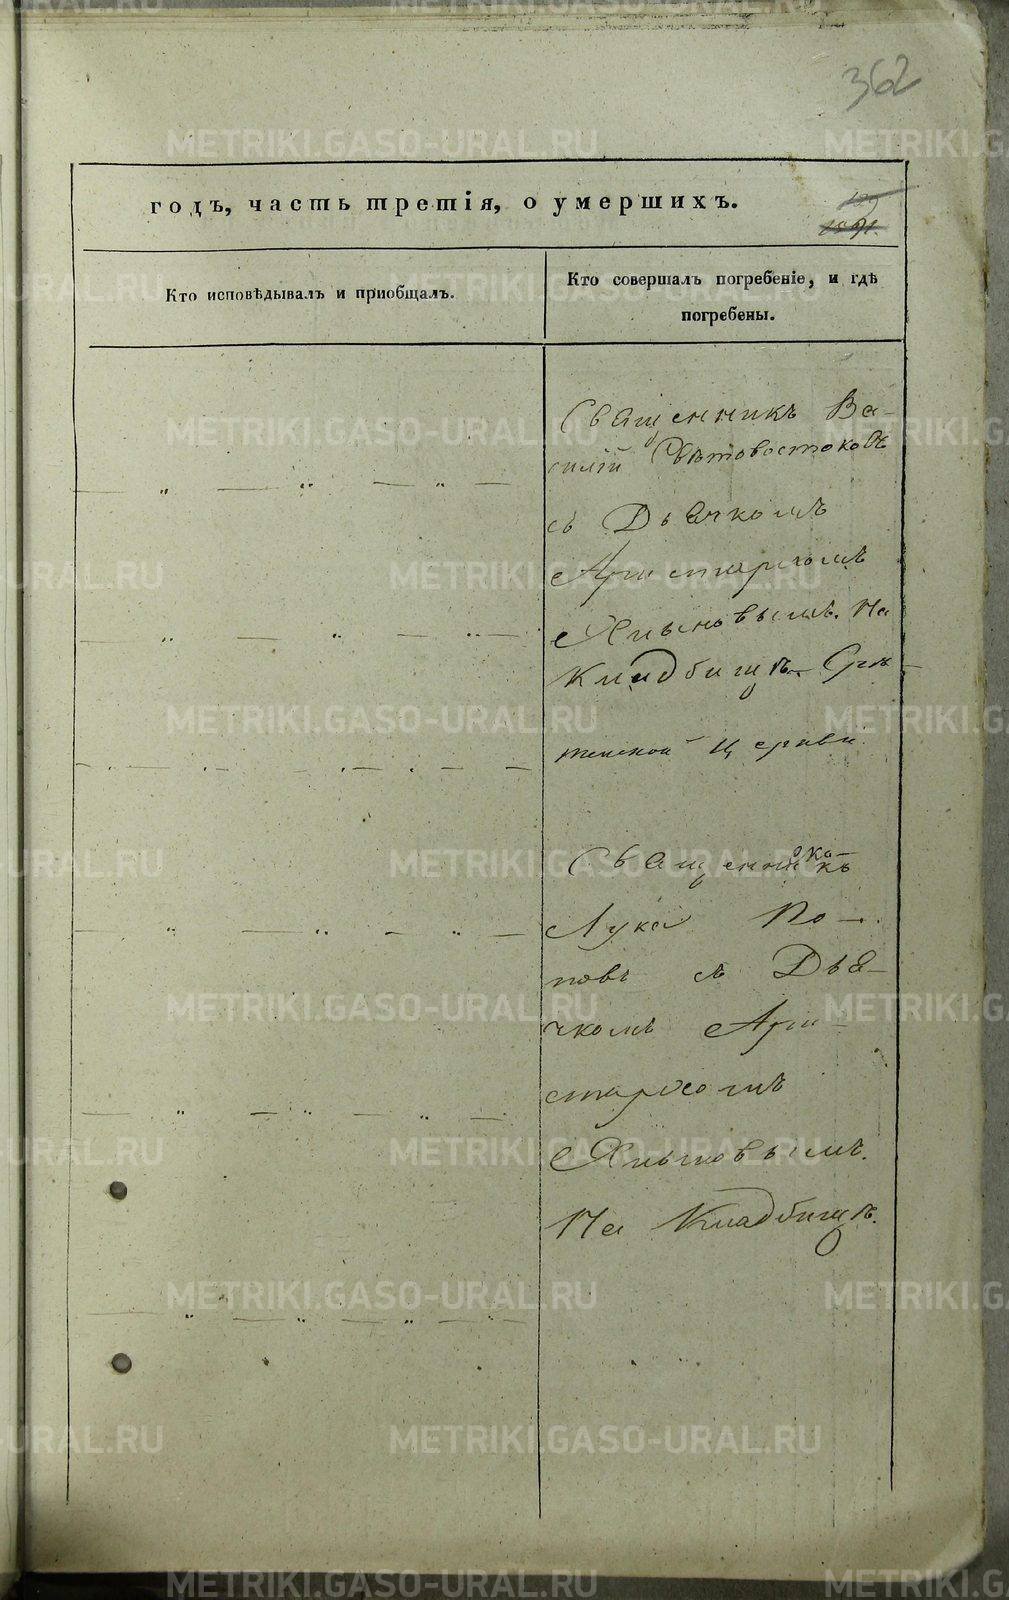 362
годъ, часть третія, о умершихъ.
Кто исповѣдывалъ и пріобщалъ.
Кто совершалъ погребеніе, и гдѣ
погребены.
Священникъ Ва-
силій Свѣтовостоковъ
съ Дьячкомъ
Аристархомъ
Хлыновымъ. На
Кладбищѣ Срѣ-
тенской церкви.
Священникъ
Лука По-
повъ съ Дья-
чкомъ Ари-
стархомъ
Хлыновымъ.
На Кладбищѣ.
METRIKI.GASO-URAL.RU